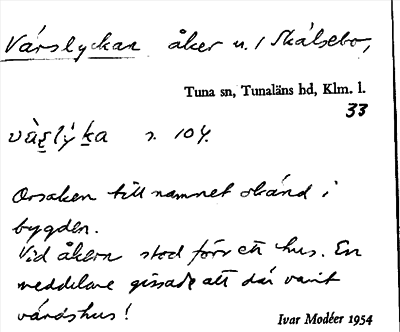 Vårslyckan åker n. 1 Skälsebo,
Tuna sn, Tunaläns hd, Klm. l.
33
s. 104.
Orsaken till namnet okänd i
bygden.
Vid åkern stod förr ett hus. En
meddelare gissade att där varit
vårdshus!
Ivar Modéer 1954